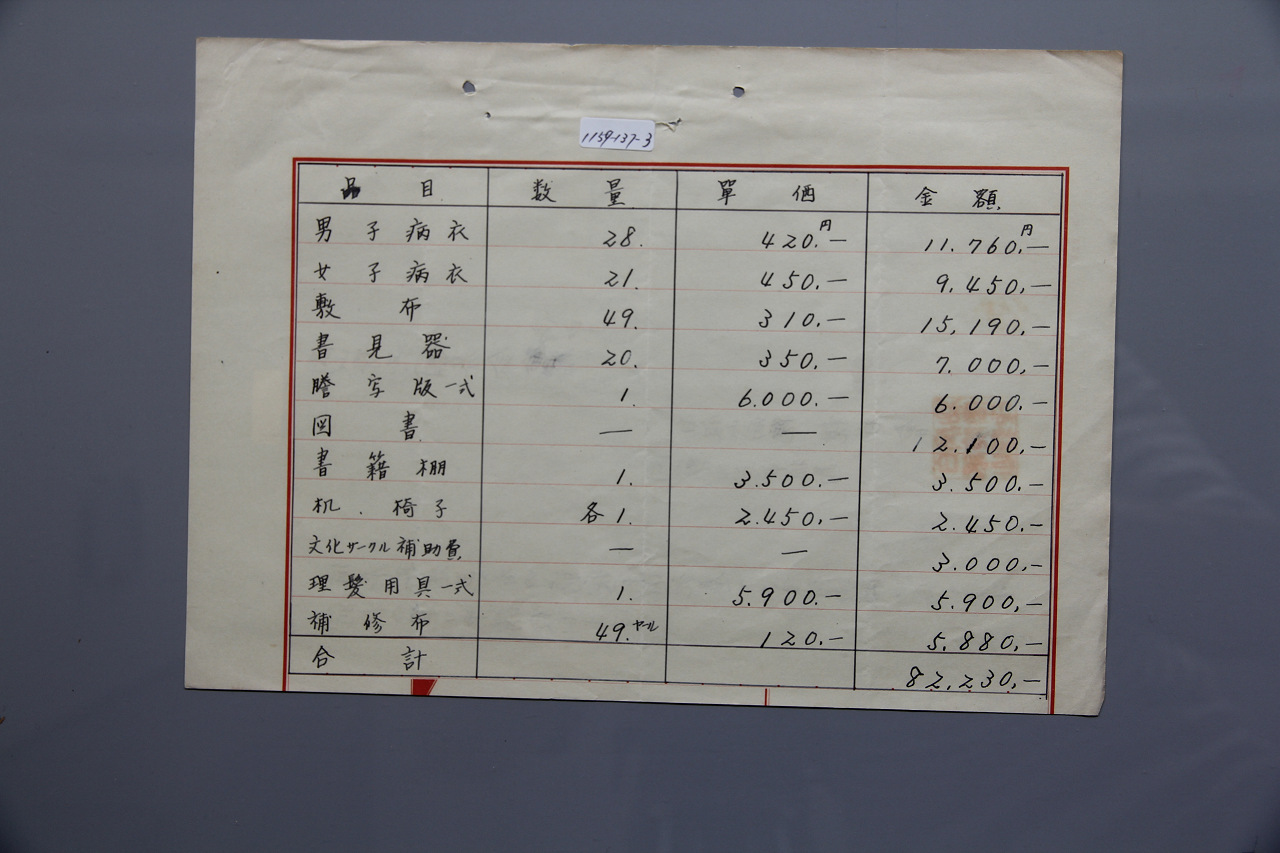 1159-137-3
品目 数量 單価 金額
男子病衣 28. 420.円— 11.760.円—
女子病衣 21. 450.— 9.450.—
敷布 49. 310.— 15,190.—
書見器 20. 350.— 7.000.—
謄写版一式 1. 6.000.— 6.000.—
図書 — — 12.100.—
書籍棚 1. 3.500.— 3.500.—
机.椅子 各1. 2.450.— 2.450.—
文化サークル補助費 — — 3.000.—
理髪用具一式 1. 5.900.— 5.900.—
補修布 49.ヤール 120.— 5.880.—
合計 82,230.—